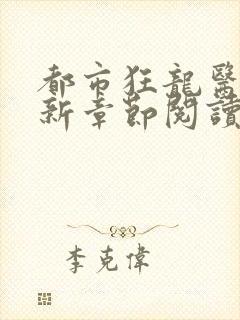 都市狂龍醫
新章節閱讀
李克偉